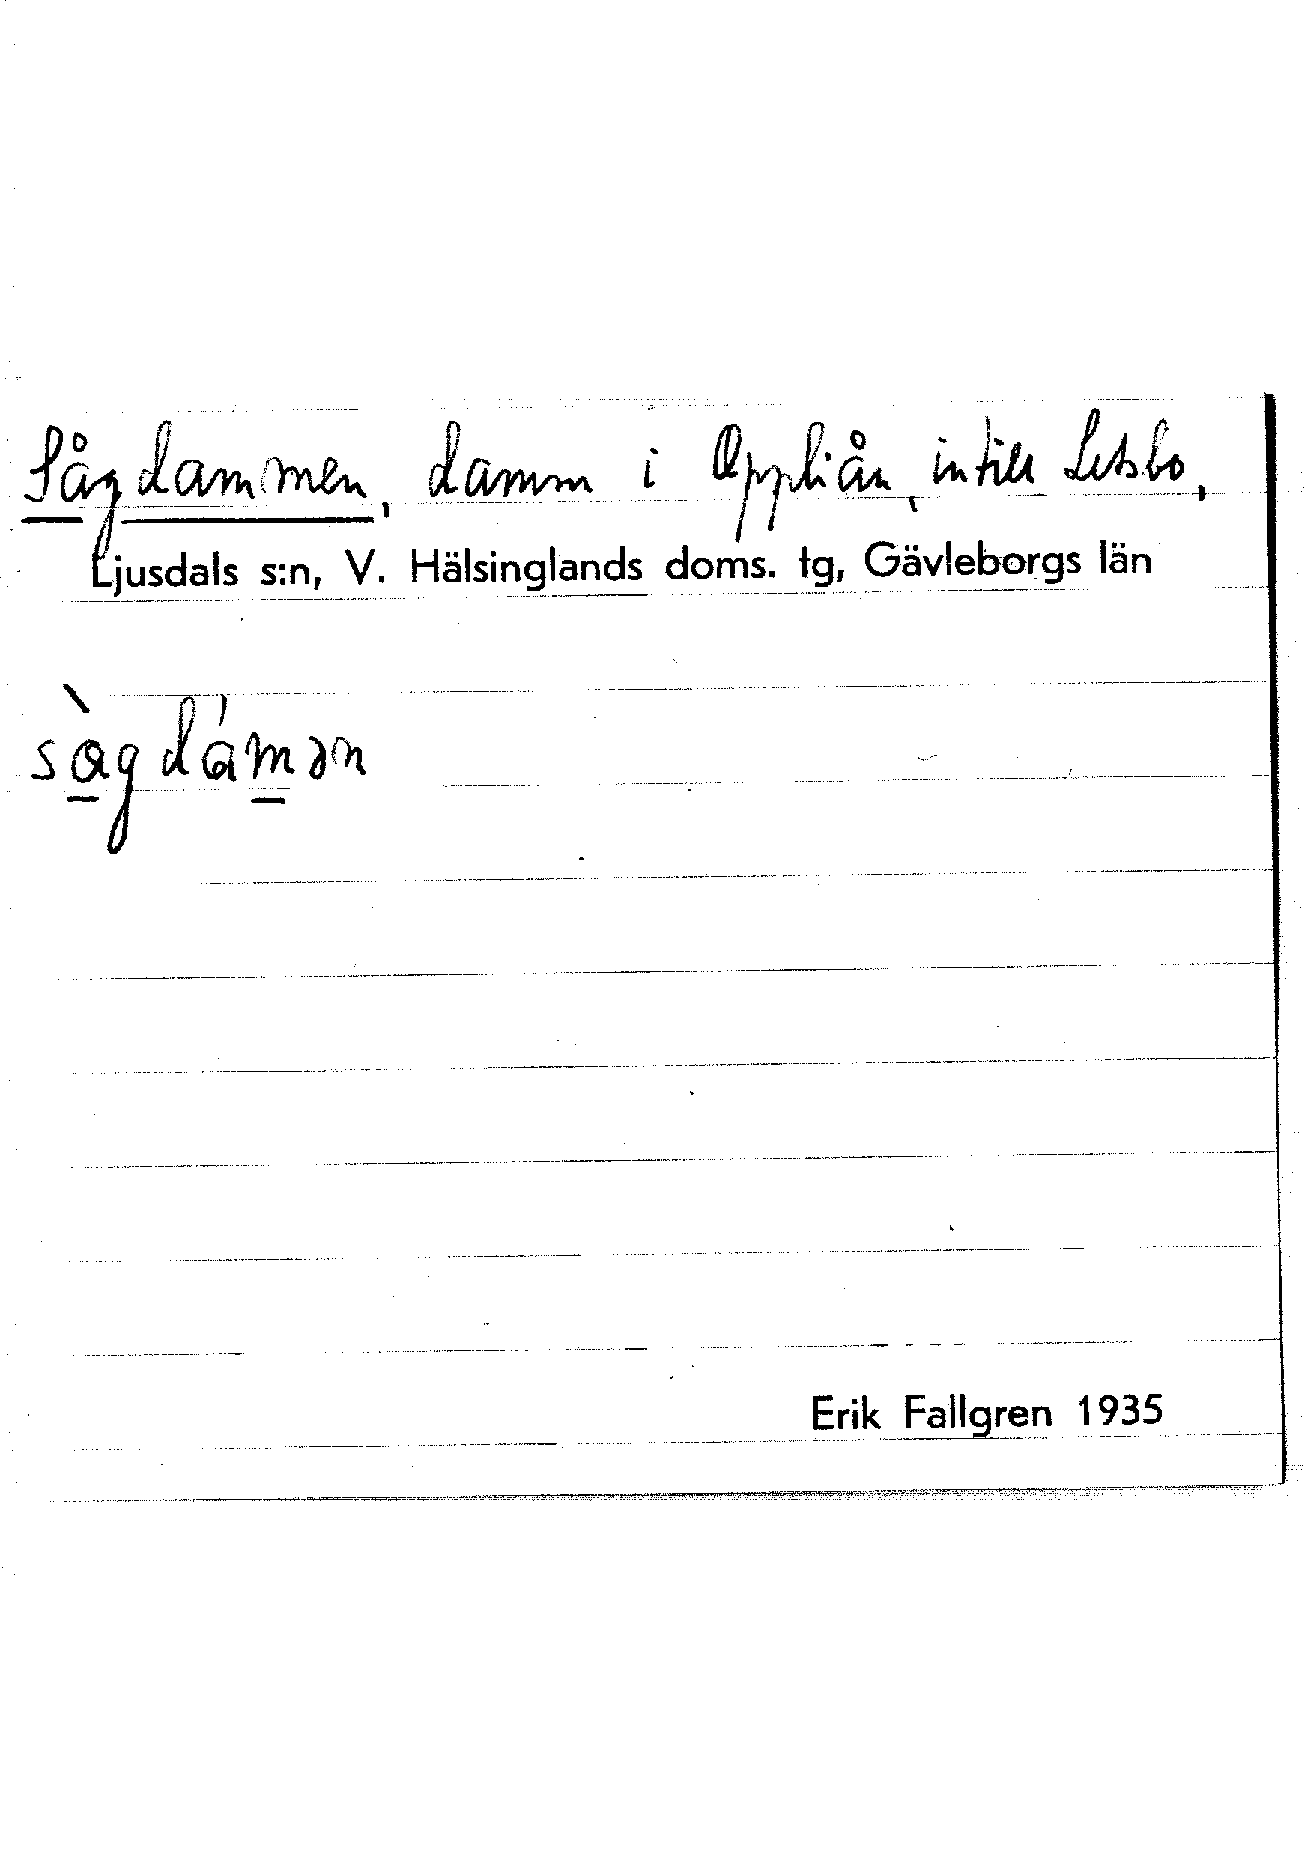 Sågdammen, damm i Öppliån, intill Letsbo,
Ljusdals s:n, V. Hälsinglands doms. tg, Gävleborgs län
sàgdámən
Erik Fallgren 1935